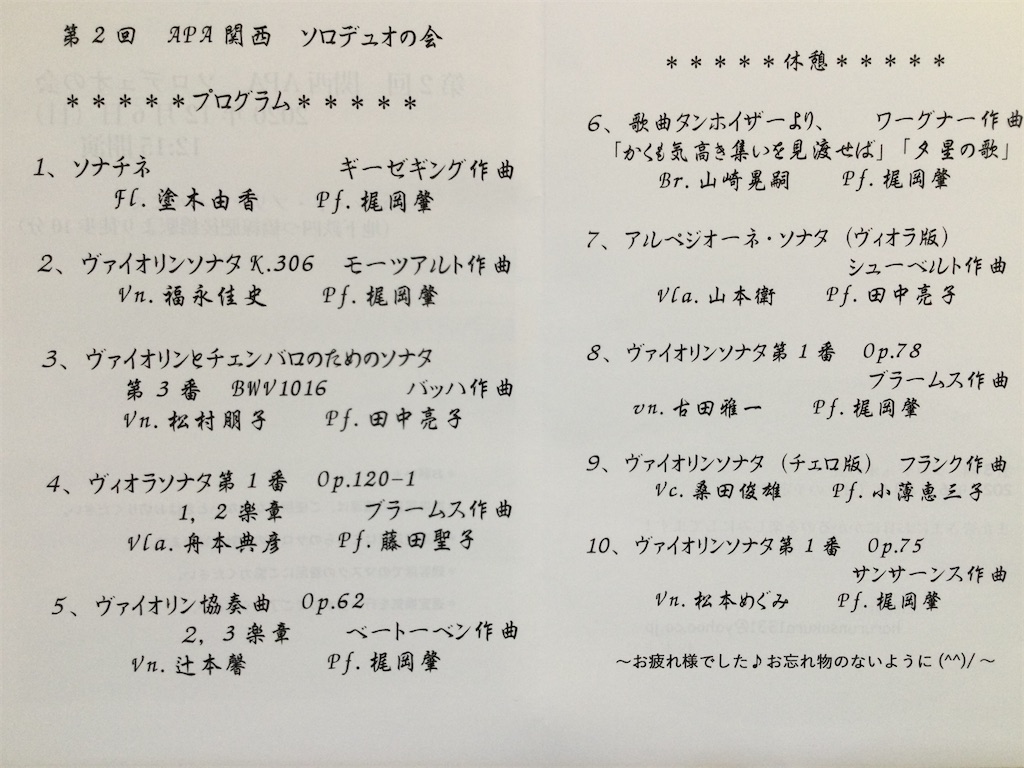 第2回 APA関西 ソロデュオの会
＊＊＊＊＊プログラム＊＊＊＊＊
1、ソナチネ ギーゼギング作曲
Fl. 塗木由香 Pf. 梶岡肇
2、ヴァイオリンソナタK.306 モーツアルト作曲
Vn. 福永佳史 Pf. 梶岡肇
3、ヴァイオリンとチェンバロのためのソナタ
第3番 BWV1016 バッハ作曲
Vn. 松村朋子 Pf. 田中亮子
4、ヴィオラソナタ第1番 Op.120-1
1, 2楽章 ブラームス作曲
Vla. 舟本典彦 Pf. 藤田聖子
5、ヴァイオリン協奏曲 Op.62
2, 3楽章 ベートーベン作曲
Vn. 辻本馨 Pf. 梶岡肇
＊＊＊＊＊休憩＊＊＊＊＊
6、歌曲タンホイザーより、 ワーグナー作曲
「かくも気高き集いを見渡せば」「夕星の歌」
Br. 山崎晃嗣 Pf. 梶岡肇
7、アルペジオーネ・ソナタ（ヴィオラ版）
シューベルト作曲
Vla. 山本衛 Pf. 田中亮子
8、ヴァイオリンソナタ第1番 Op.78
ブラームス作曲
vn. 古田雅一 Pf. 梶岡肇
9、ヴァイオリンソナタ（チェロ版） フランク作曲
Vc. 桑田俊雄 Pf. 小薄恵三子
10、ヴァイオリンソナタ第1番 Op.75
サンサーンス作曲
Vn. 松本めぐみ Pf. 梶岡肇
～お疲れ様でした♪お忘れ物のないように(^^)/～